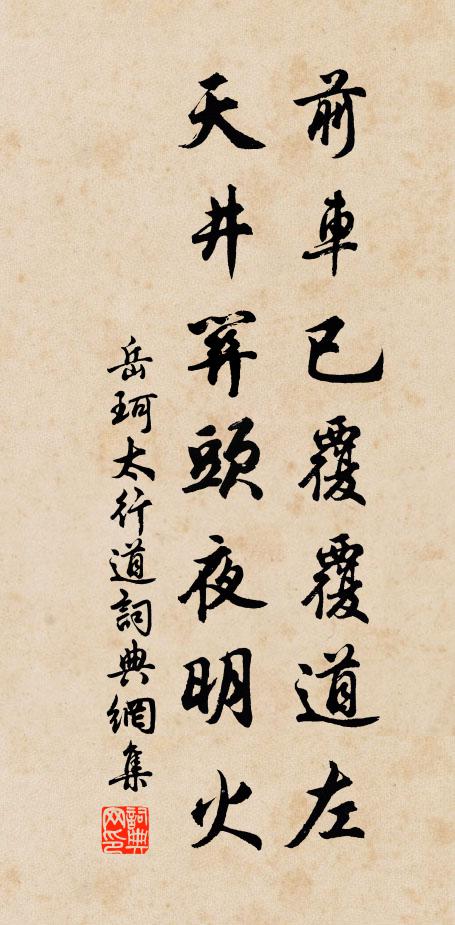 前車已覆覆道左
天井關頭夜明火
岳珂太行道詞典網集
詞典網印